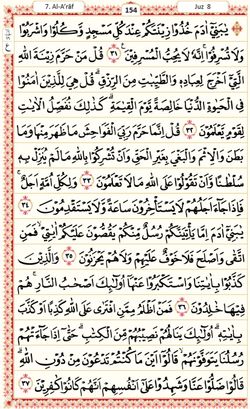 7. Al-A'rāf 154 Juz 8
یٰبَنِیْۤ اٰدَمَ خُذُوْا زِیْنَتَكُمْ عِنْدَ كُلِّ مَسْجِدٍ وَّكُلُوْا وَاشْرَبُوْا
وَلَا تُسْرِفُوْا ۚ اِنَّهٗ لَا یُحِبُّ الْمُسْرِفِیْنَ ۳۱ قُلْ مَنْ حَرَّمَ زِیْنَةَ اللّٰهِ
الَّتِیْۤ اَخْرَجَ لِعِبَادِهٖ وَالطَّیِّبٰتِ مِنَ الرِّزْقِ ؕ قُلْ هِیَ لِلَّذِیْنَ اٰمَنُوْا
فِی الْحَیٰوةِ الدُّنْیَا خَالِصَةً یَّوْمَ الْقِیٰمَةِ ؕ كَذٰلِكَ نُفَصِّلُ الْاٰیٰتِ
لِقَوْمٍ یَّعْلَمُوْنَ ۳۲ قُلْ اِنَّمَا حَرَّمَ رَبِّیَ الْفَوَاحِشَ مَا ظَهَرَ مِنْهَا وَمَا
بَطَنَ وَالْاِثْمَ وَالْبَغْیَ بِغَیْرِ الْحَقِّ وَاَنْ تُشْرِكُوْا بِاللّٰهِ مَا لَمْ یُنَزِّلْ بِهٖ
سُلْطٰنًا وَّاَنْ تَقُوْلُوْا عَلَی اللّٰهِ مَا لَا تَعْلَمُوْنَ ۳۳ وَلِكُلِّ اُمَّةٍ اَجَلٌ ۚ
فَاِذَا جَآءَ اَجَلُهُمْ لَا یَسْتَاْخِرُوْنَ سَاعَةً وَّلَا یَسْتَقْدِمُوْنَ ۳۴
یٰبَنِیْۤ اٰدَمَ اِمَّا یَاْتِیَنَّكُمْ رُسُلٌ مِّنْكُمْ یَقُصُّوْنَ عَلَیْكُمْ اٰیٰتِیْ ۙ فَمَنِ
اتَّقٰی وَاَصْلَحَ فَلَا خَوْفٌ عَلَیْهِمْ وَلَا هُمْ یَحْزَنُوْنَ ۳۵ وَالَّذِیْنَ
كَذَّبُوْا بِاٰیٰتِنَا وَاسْتَكْبَرُوْا عَنْهَاۤ اُولٰٓئِكَ اَصْحٰبُ النَّارِ ۚ هُمْ
فِیْهَا خٰلِدُوْنَ ۳۶ فَمَنْ اَظْلَمُ مِمَّنِ افْتَرٰی عَلَی اللّٰهِ كَذِبًا اَوْ كَذَّبَ
بِاٰیٰتِهٖ ؕ اُولٰٓئِكَ یَنَالُهُمْ نَصِیْبُهُمْ مِّنَ الْكِتٰبِ ؕ حَتّٰۤی اِذَا جَآءَتْهُمْ
رُسُلُنَا یَتَوَفَّوْنَهُمْ ۙ قَالُوْۤا اَیْنَ مَا كُنْتُمْ تَدْعُوْنَ مِنْ دُوْنِ اللّٰهِ ؕ
قَالُوْا ضَلُّوْا عَنَّا وَشَهِدُوْا عَلٰۤی اَنْفُسِهِمْ اَنَّهُمْ كَانُوْا كٰفِرِیْنَ ۳۷